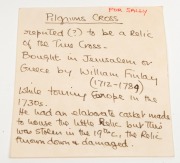 FOR SALLY
Pilgrims CROSS
reputed (?) to be a Relic
of the True Cross-
Bought in Jerusalem or
Greece by William Finlay
(1712-1784)
while touring Europe in the
1730s.
He had an elaborate casket made
to house the little Relic but this
was stolen in the 19th c, the Relic
thrown down & damaged.